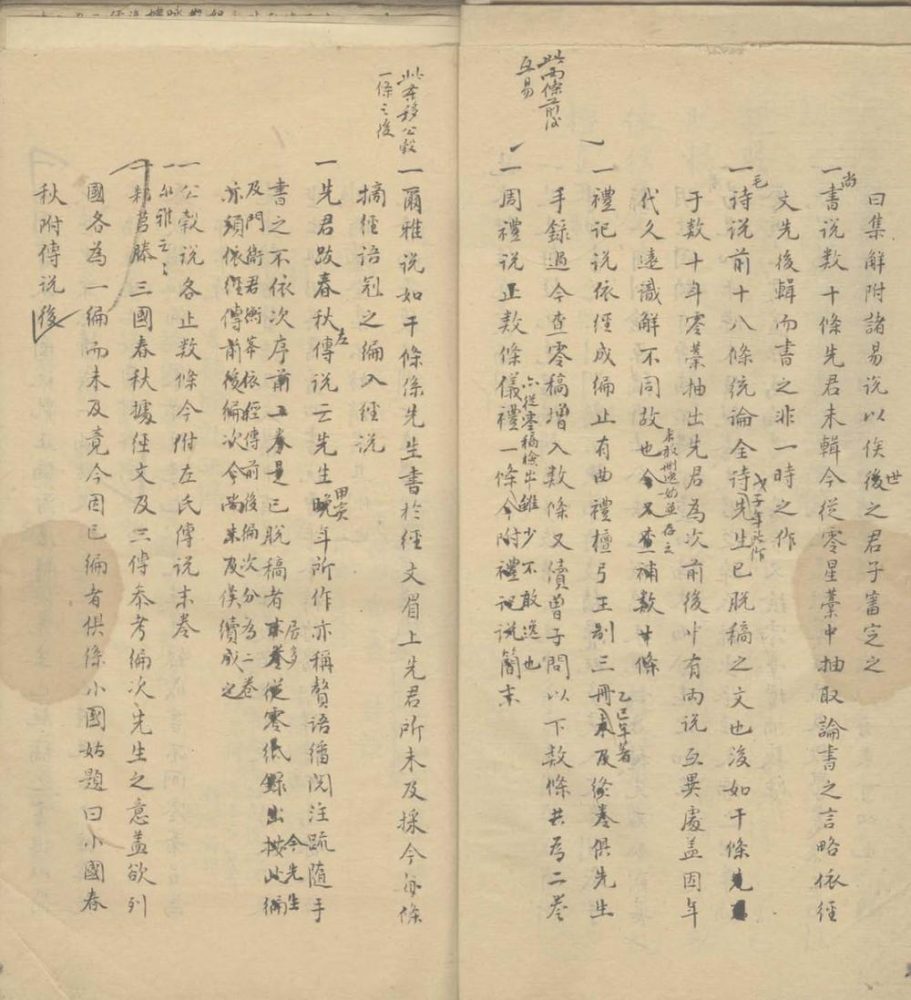 此兩條前後
互易
曰集解附諸易說以俟後世之君子審定之
一尚書說數十條先君未輯今從零星藁中抽取論書之言略依經
文先後輯而書之非一時之作
一毛詩說前十八條統論全詩戊子年所作先生已脫稿之文也後如干條
于數十年零藁抽出先君為次前後中有兩說互異處蓋因年
代久遠識解不同故也未敢刪並存之今又查補數廿條
一禮記說依經成編止有曲禮檀弓王制三冊乙巳年著未及終卷俱先生
手錄過今查零稿增入數條又續曾子問以下數條共為二卷
一周禮說止數條儀禮一條亦從零稿檢出雖少不敢遺也今附禮記說簡末
此条移公穀
一條之後
一爾雅說如干條係先生書於經文眉上先君所未及採今亦條
摘經語冠之編入經說
一先君跋春秋左傳說云先生晚年所作亦稱贅語繙閱注疏隨手
書之不依次序前二卷是已脫稿者居多末卷從零紙錄出按此編今先生
及門衛君衡筆依經傳前後編次分為二卷
亦須依經傳前後編次今尚未及俟續成之
一公穀說各止數條今附左氏傳說末卷
一尔雅云々
一邾莒滕三國春秋據經文及三傳參考編次先生之意蓋欲列
國各為一編而未及竟今因已編者俱係小國姑題曰小國春
秋附傳說後